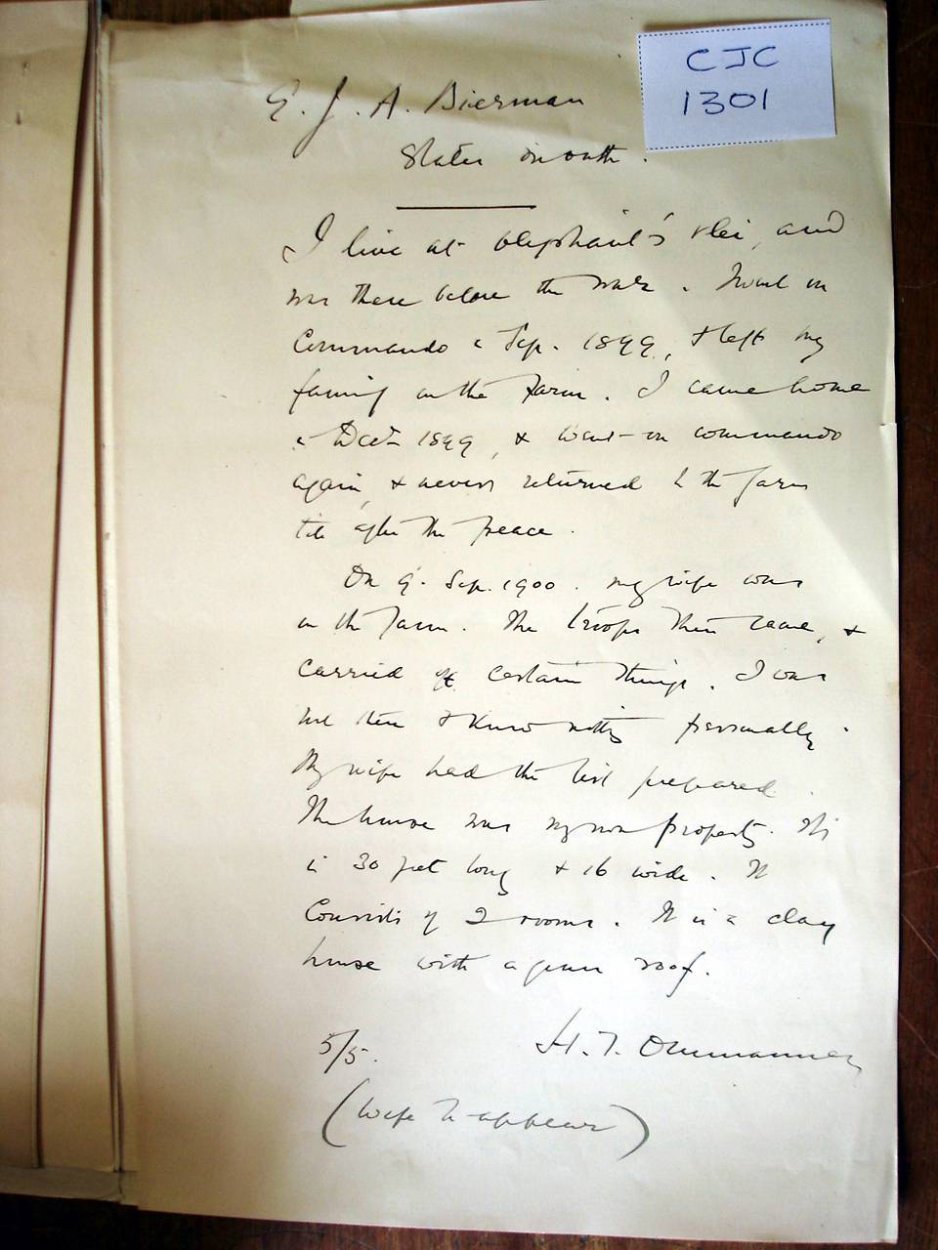 CJC
1301
G. J. A. Bierman
States on oath.
I live at Olephant's Vlei, and
was there before the war. I went on
Commando in Sep. 1899, & left my
family on the Farm. I came home
in Dec 1899, & went on commando
again, & never returned to the farm
till after the Peace.
On 9. Sep. 1900. my wife was
on the Farm. The troops then came, &
carried off certain things. I was
not there & know nothing personally.
My wife had the list prepared.
The house was my own property. It
is 30 feet long & 16 wide. It
Consists of 2 rooms. It is a clay
house with a grass roof.
5/5.
H. T. Ommanney
(Wife to appear)